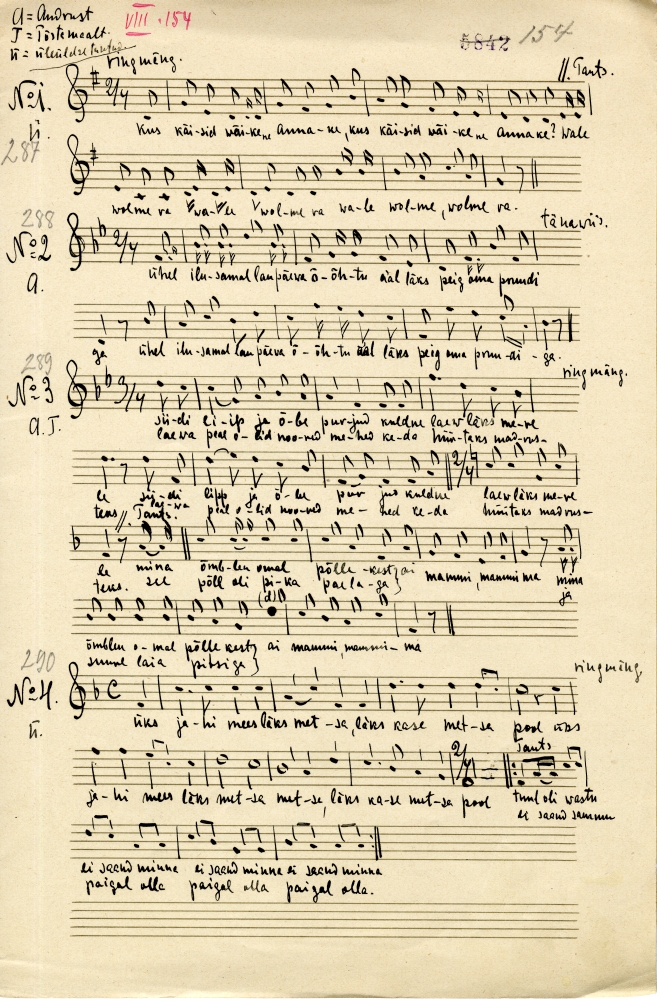 A = Audrust
T = Tõstamaalt
Ü =
VIII . 154
5842 154
ringmäng.
// Tants.
№ 1.
Ü.
287
2/4
Kus käi-sid wäi-ke ne Anna-ke, kus käi-sid wäi-ke ne Annake? Wale
wolme ra wa-le wol-me ra wa-le wol-me, wolme ra.
tänawiis.
288
№ 2
A.
2/4
Ühel ilu-samal laupäeva õ-õh-tu äál läks peig oma pruudi
ga Ühel ilu-samal laupäeva õ-õh-tu äál läks peig oma pruu-di-ga.
ringmäng.
289
№ 3
A.T.
3/4
Sii-di li-ip ja õ-be pur-jud kuldne laew läks me-re
laewa peal o-lid noo-red me-hed ke-da hüü-taks mad-rus-
2/4
le sii-di lipp ja õ-be pur jud kuldne laew läks me-re
teks lae-wa peal o-lid noo-red me-hed ke-da hüütaks madrus-
// Tants.
le mina õmb-len omal põlle-kest ai mammi, mammi ma mina
teks. see põll oli pi-ka pae la-ga } ja
(d)
õmblen o-mal põlle kest } ai mammi, mammi-ma
suure laia pitsiga }
290
ringmäng.
№ 4.
Ü.
C
Üks ja-hi mees läks met-sa, läks kase met-sa pool üks
2/4
Tants
ja-hi mees läks met-sa met-sa, läks ka-se met-sa pool tuul oli wastu
ei saand sammu
ei saand minna ei saand minna ei saand minna
paigal olla paigal olla paigal olla.